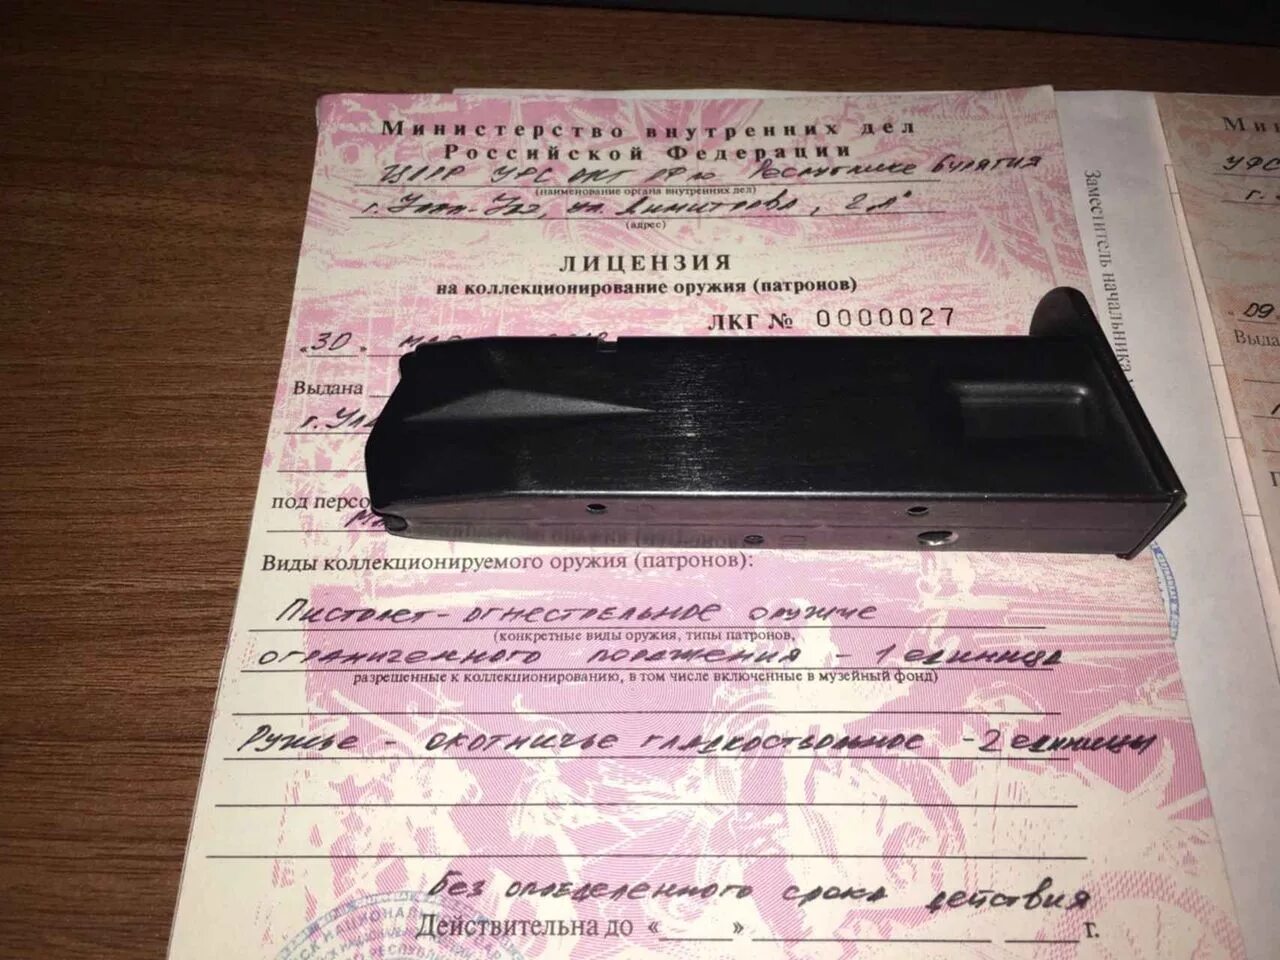 Министерство внутренних дел
Российской Федерации
ЦЛРР УРС ВНГ РФ по Республике Бурятия
(наименование органа внутренних дел)
г. Улан-Удэ, ул. Димитрова, 2 "А"
(адрес)
ЛИЦЕНЗИЯ
на коллекционирование оружия (патронов)
ЛКГ № 0000027
«30»
Выдана
г. Ула
под персо
Виды коллекционируемого оружия (патронов):
Пистолет - огнестрельное оружие
(конкретные виды оружия, типы патронов,
ограниченного поражения - 1 единица
разрешенные к коллекционированию, в том числе включенные в музейный фонд)
Ружье - охотничье гладкоствольное - 2 единицы
Без определенного срока действия
Действительна до «    »              г.
Заместитель начальника
Ми
УРС
г.
09
Выда